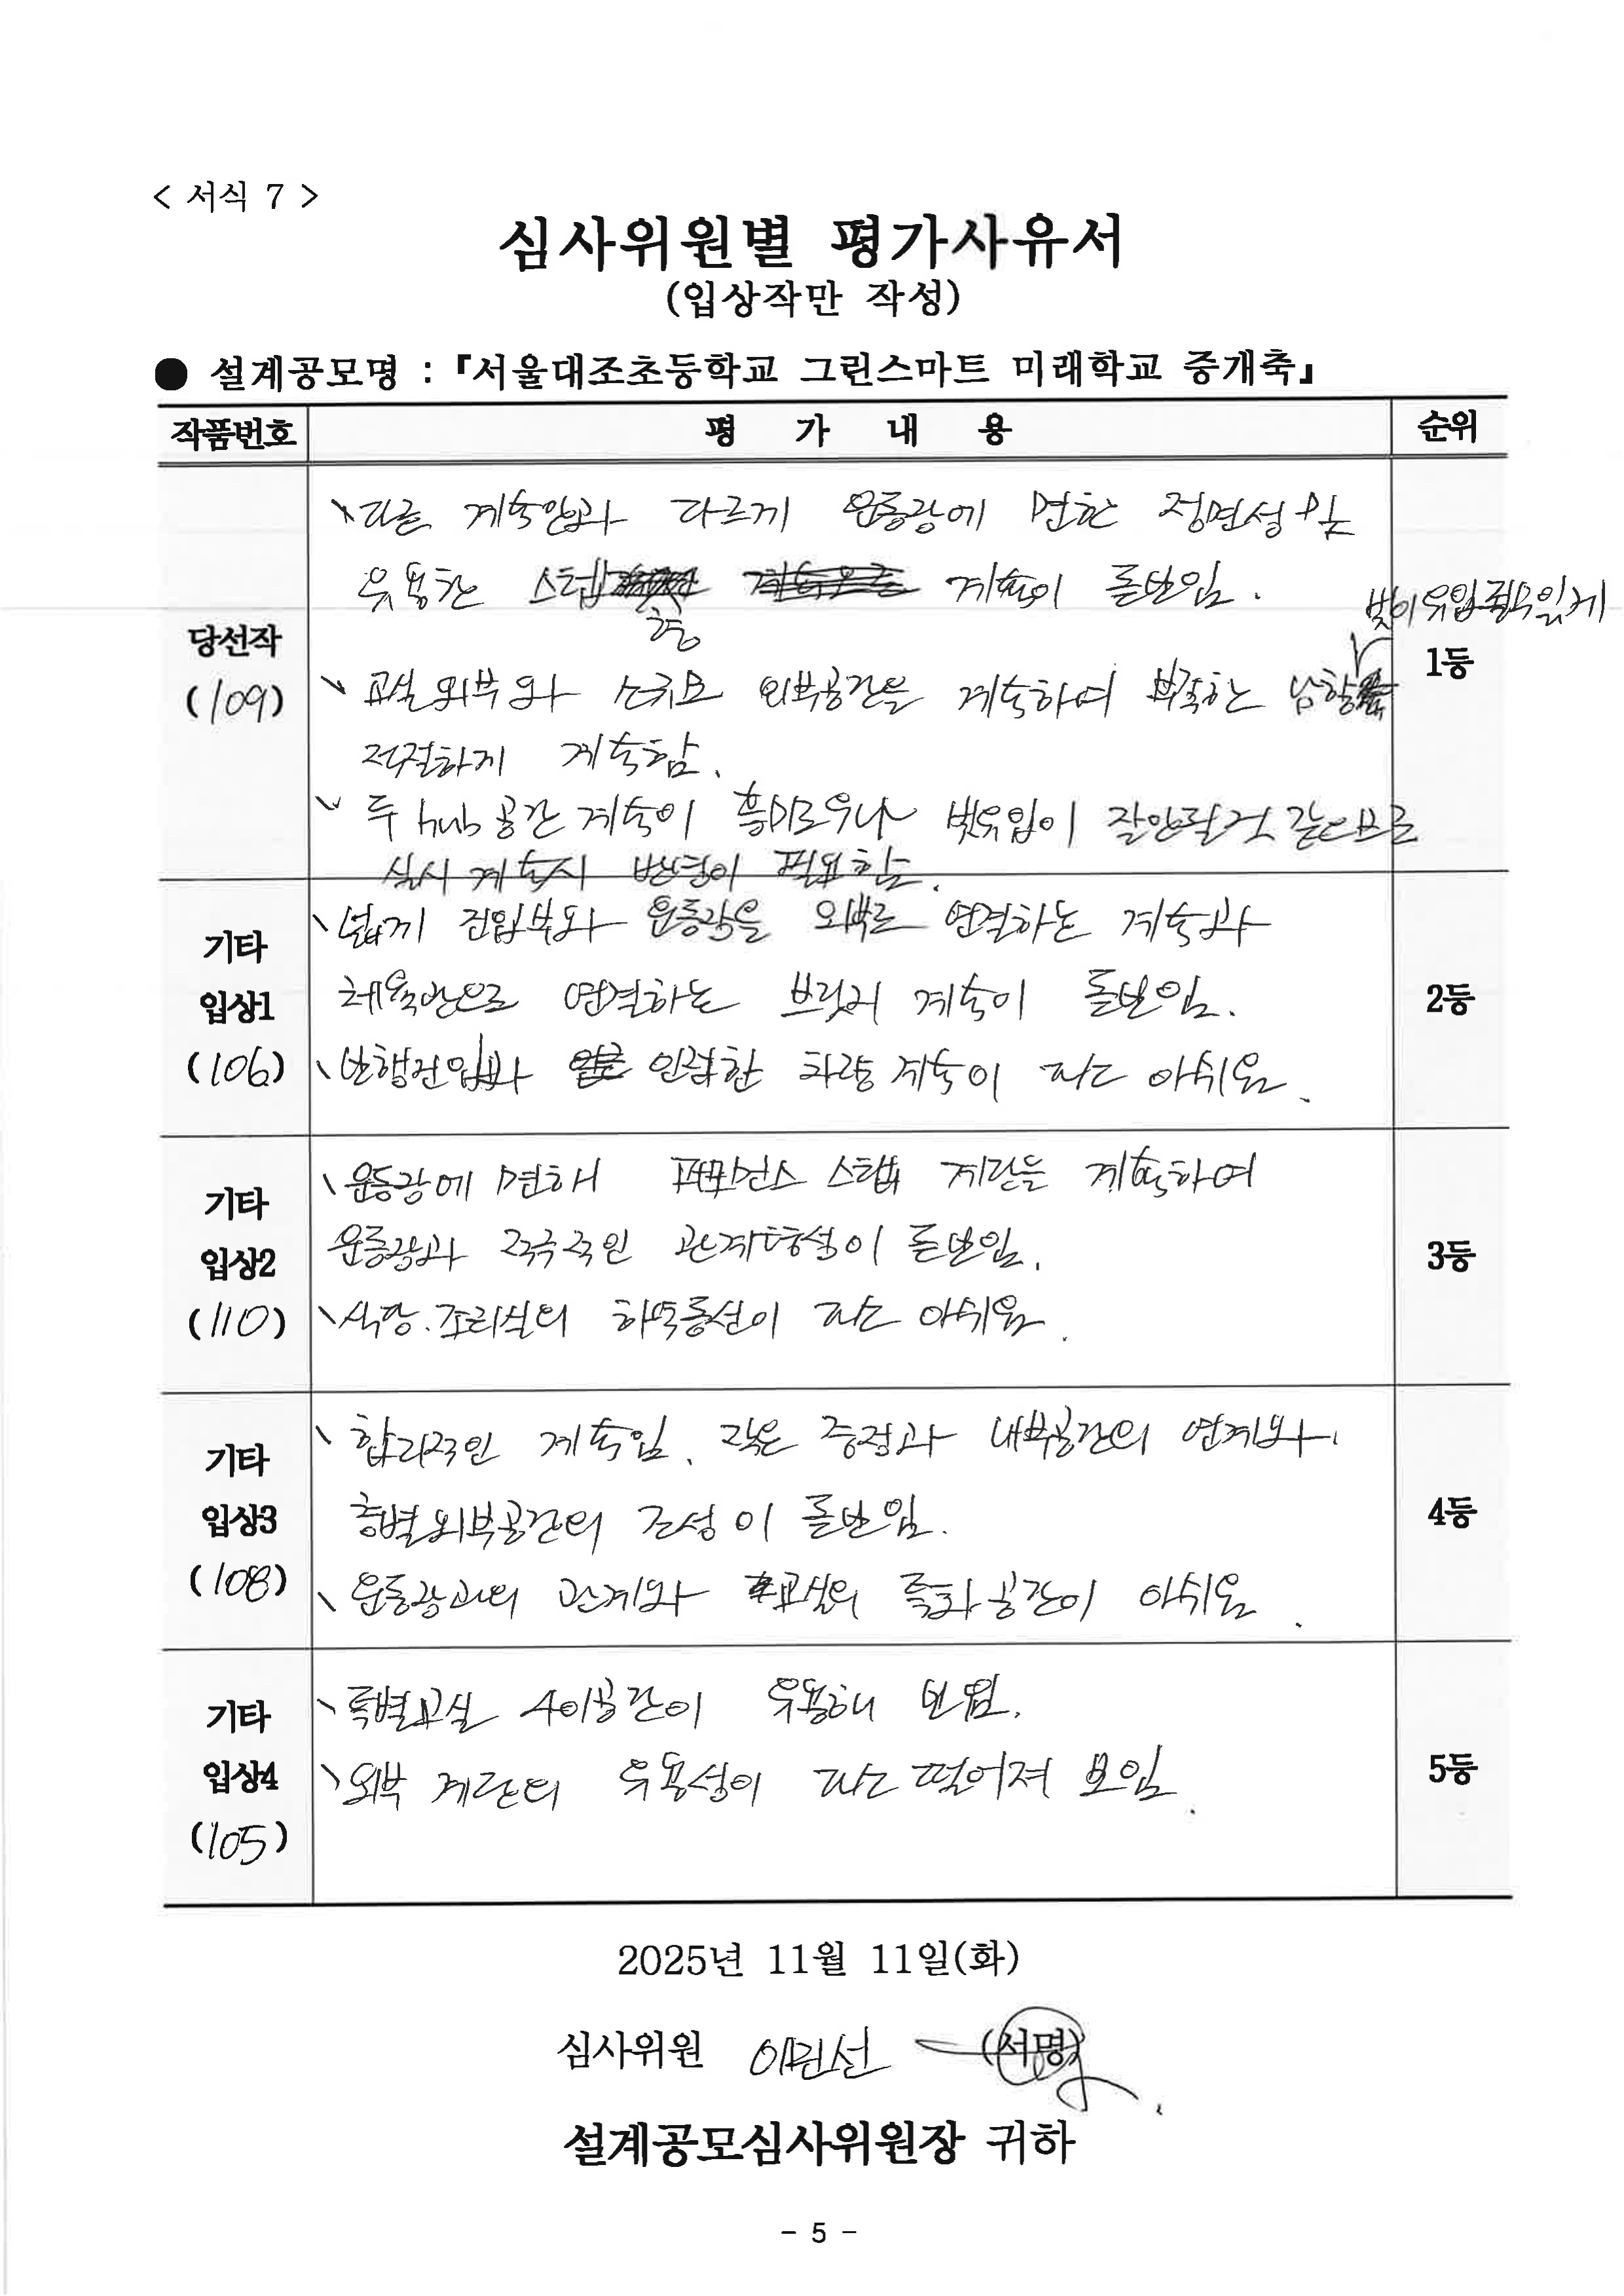 < 서식 7 >
심사위원별 평가사유서
(입상작만 작성)
● 설계공모명 : 『서울대조초등학교 그린스마트 미래학교 증개축』
작품번호 평 가 내 용 순위
당선작
(109)
1등
、다른 계획안과 다르게 운동장에 면한 정면성 및
유용한 스텝 층 계획이 돋보임.
빛이 유입
、교실 외부와 소규모 외부공간을 계획하여 부족한 남향
적절하게 계획함.
、두 hub 공간 계획이 흥미로우나 빛유입이 잘안될것 같으므로
실시 계획시 반영이 필요함.
기타
입상1
(106)
2등
、넓게 진입부와 운동장을 외부로 연결하는 계획과
체육관으로 연결하는 브릿지 계획이 돋보임.
、보행진입부와 인접한 차량 계획이 다소 아쉬움.
기타
입상2
(110)
3등
、운동장에 면해 퍼포먼스 스텝 계단을 계획하여
운동장과 적극적인 관계형성이 돋보임.
、식당.조리실의 하역동선이 다소 아쉬움.
기타
입상3
(108)
4등
、합리적인 계획임. 작은 중정과 내부공간의 연계부와
층별외부공간의 조성이 돋보임.
、운동장과의 관계와 교실의 특화공간이 아쉬움.
기타
입상4
(105)
5등
、특별교실 사이공간이 유용해 보임.
、외부 계단의 유용성이 다소 떨어져 보임.
2025년 11월 11일(화)
심사위원 이민선 (서명)
설계공모심사위원장 귀하
- 5 -